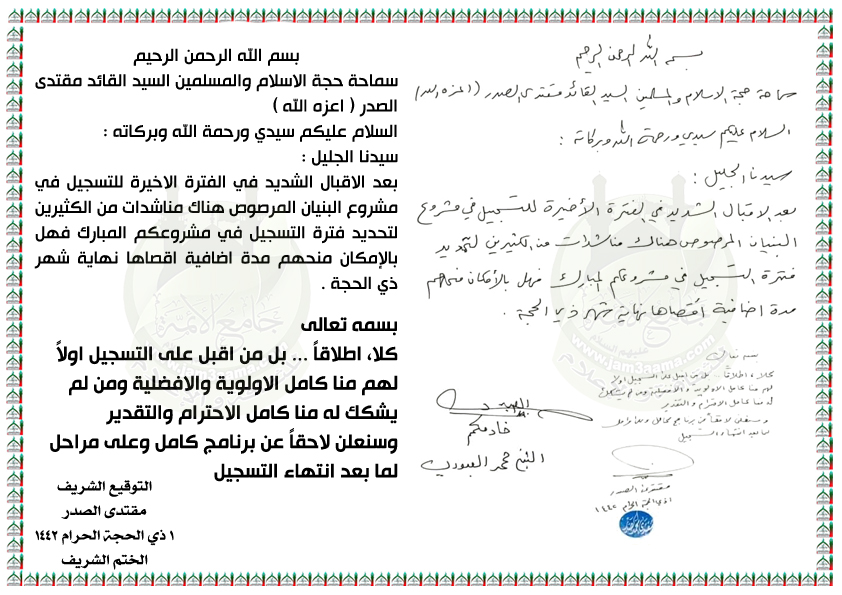 بسم الله الرحمن الرحيم
سماحة حجة الاسلام والمسلمين السيد القائد مقتدى الصدر (اعزه الله)
السلام عليكم سيدي ورحمة الله وبركاته :
سيدنا الجليل :
بعد الاقبال الشديد في الفترة الأخيرة للتسجيل في مشروع
البنيان المرصوص هناك مناشدات من الكثيرين لتمديد
فترة التسجيل في مشروعكم المبارك فهل بالأمكان منحهم
مدة اضافية اقصاها نهاية شهر ذي الحجة .
خادمكم
الشيخ محمد العبودي
بسمه تعالى
كلا، اطلاقاً ... بل من اقبل على التسجيل اولاً
لهم منا كامل الاولوية والافضلية ومن لم
له منا كامل الاحترام والتقدير
وسنعلن لاحقاً عن برنامج كامل وعلى مراحل
لما بعد انتهاء التسجيل
مقتدى الصدر
بسم الله الرحمن الرحيم
سماحة حجة الاسلام والمسلمين السيد القائد مقتدى
الصدر ( اعزه الله )
السلام عليكم سيدي ورحمة الله وبركاته :
سيدنا الجليل :
بعد الاقبال الشديد في الفترة الاخيرة للتسجيل في
مشروع البنيان المرصوص هناك مناشدات من الكثيرين
لتحديد فترة التسجيل في مشروعكم المبارك فهل
بالإمكان منحهم مدة اضافية اقصاها نهاية شهر
ذي الحجة .
بسمه تعالى
كلا، اطلاقاً ... بل من اقبل على التسجيل اولاً
لهم منا كامل الاولوية والافضلية ومن لم
يشكك له منا كامل الاحترام والتقدير
وسنعلن لاحقاً عن برنامج كامل وعلى مراحل
لما بعد انتهاء التسجيل
التوقيع الشريف
مقتدى الصدر
١ ذي الحجة الحرام ١٤٤٢
الختم الشريف
جامع الائمة
www.jam3aama.com